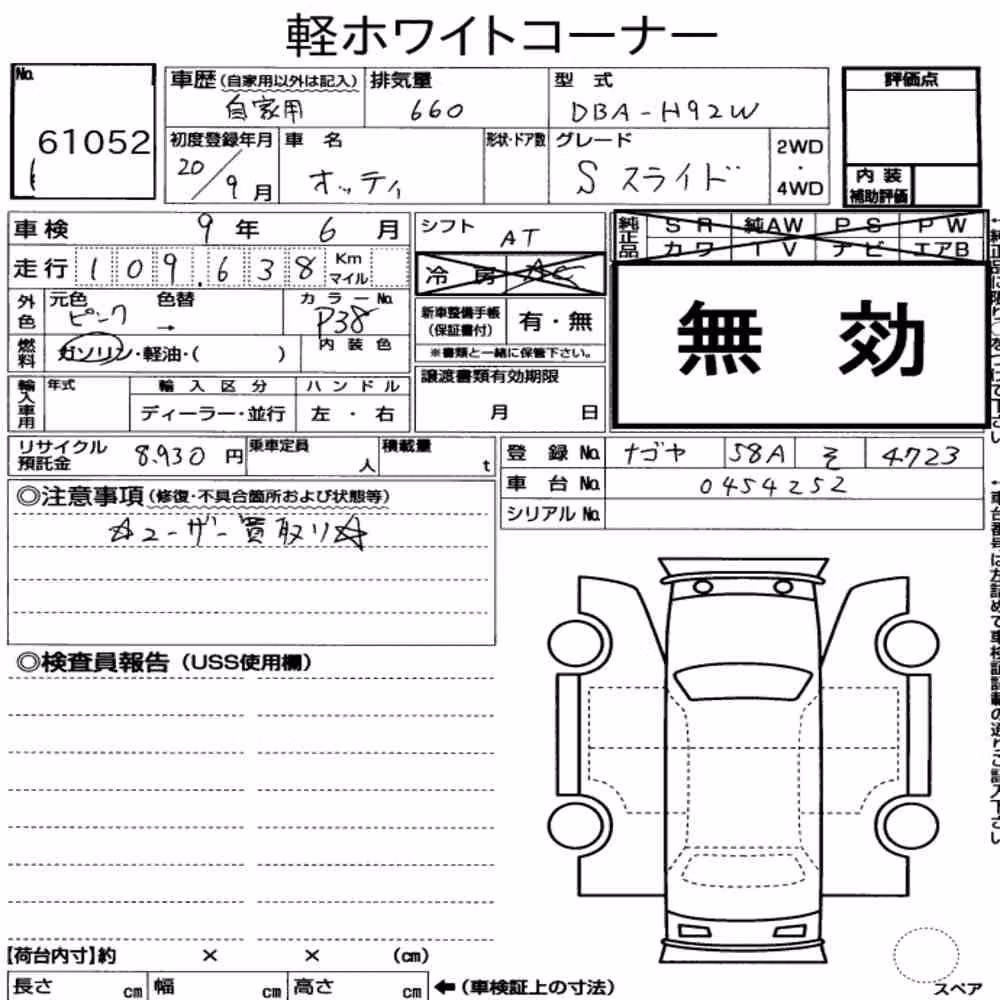 軽ホワイトコーナー
No.
61052
車歴(自家用以外は記入)
自家用
排気量
660
型式
DBA-H92W
評価点
初度登録年月
20/9月
車名
オッティ
形状・ドア数
グレード
S スライド
2WD
・
4WD
内装
補助評価
車検 9年 6月
シフト
AT
純正品
SR 純AW PS PW
カワ TV ナビ エアB
走行 109,638 Km
マイル
冷房 AC
外色
元色 色替
ピンク →
カラーNo.
P38
新車整備手帳
(保証書付)
有・無
※書類と一緒に保管下さい。
無効
燃料
ガソリン・軽油・( )
内装色
輸入車用
年式
輸入区分
ディーラー・並行
ハンドル
左・右
譲渡書類有効期限
月 日
リサイクル
預託金
8,930円
乗車定員
人
積載量
t
登録No. ナゴヤ 58A そ 4723
車台No. 0454252
シリアルNo.
◎注意事項(修復・不具合箇所および状態等)
☆ユーザー買取り☆
◎検査員報告(USS使用欄)
【荷台内寸】約 × × (cm)
長さ cm 幅 cm 高さ cm ←(車検証上の寸法)
スペア
←純正品に限り○をつけて下さい
←車台番号は左詰めで車検証記載の通りご記入下さい